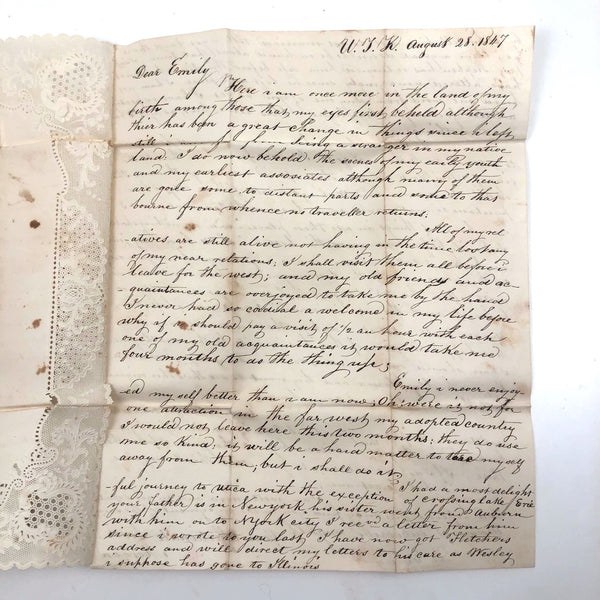 U. S. K. August 28. 1847
Dear Emily
Here i am once more in the land of my
birth among those that my eyes first beheld although
thier has been a great change in things since i left
still i far from being a stranger in my native
land. I do now behold the scenes of my early youth
and my earliest associates although many of them
are gone some to distant parts and some to that
bourne from whence no traveller returns.
All of my rel
-atives are still alive not having in the time lost any
of my near relations; I shall visit them all before i
leave for the west; and my old friends and ac-
-quaintances are overjoyed to take me by the hand
I never had so cordial a welcome in my life before
why if i should pay a visit of 1/2 an hour with each
one of my old acquaintances it would take me
four months to do the thing up;
Emily i never enjoy-
-ed my self better than i am now; Oh; were it not for
one attraction in the far west my adopted country
I would not leave here this two months; they do use
me so kind; it will be a hard matter to tare myself
away from them; but i shall do it
I had a most delight-
-ful journey to utica with the exception of crossing lake Erie
your father is in Newyork his sister went from Auburn
with him on to N.york city I recvd a letter from him
since i wrote to you last I have now got Fletchers
address and will direct my letters to his care as Wesley
i suppose has gone to Illinois